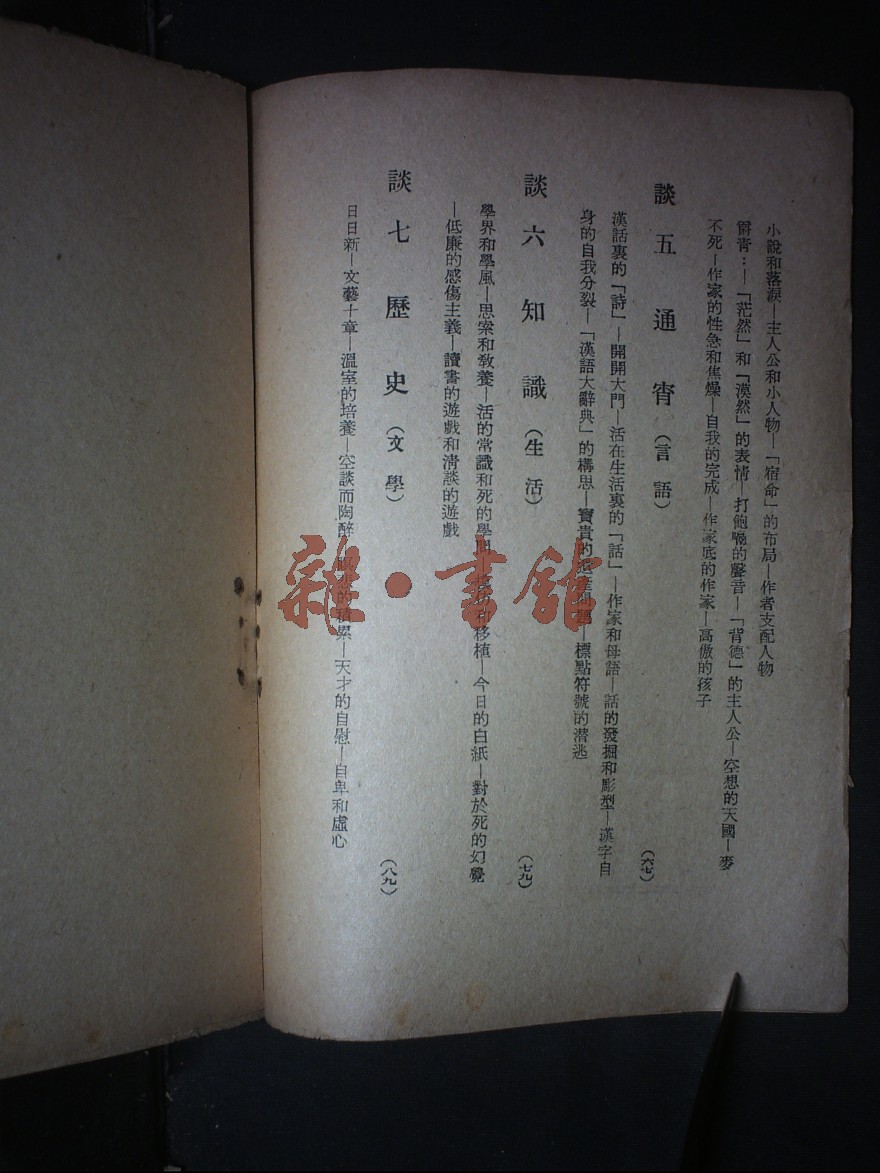 小說和落淚—主人公和小人物—「宿命」的布局—作者支配人物
爵青：—「茫然」和「漠然」的表情—打飽嗝的聲音—「背德」的主人公—空想的天國—麥
不死—作家的性急和焦燥—自我的完成—作家底的作家—高傲的孩子
談五　通宵（言語）（六七）
漢話裏的「詩」—開開大門—活在生活裏的「話」—作家和母語—話的發掘和彫型—漢字自
身的自我分裂—「漢語大辭典」的構思—寶貴的遺產問題—標點符號的潜逃
談六　知識（生活）（七九）
學界和學風—思索和敎養—活的常識和死的學問—和移植—今日的白紙—對於死的幻覺
—低廉的感傷主義—讀書的遊戲和淸談的遊戲
談七　歷史（文學）（八九）
日日新—文藝十章—溫室的培養—空談而陶醉—的積累—天才的自慰—自卑和虛心
雜·書館